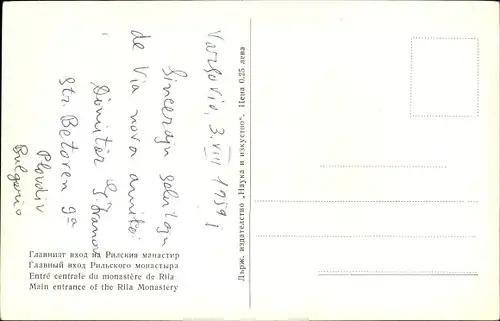 Varsovio, 3. VIII 1959 j
Sincerajn salutojn
de Via nova amiko:
Dimitâr G. Ivanov
str. Betoven 9a
Plovdiv
Bulgario
Главният вход на Рилския манастир
Главный вход Рильского монастыра
Entré centrale du monastère de Rila
Main entrance of the Rila Monastery
Държ. издателство „Наука и изкуство“. Цена 0.25 лева